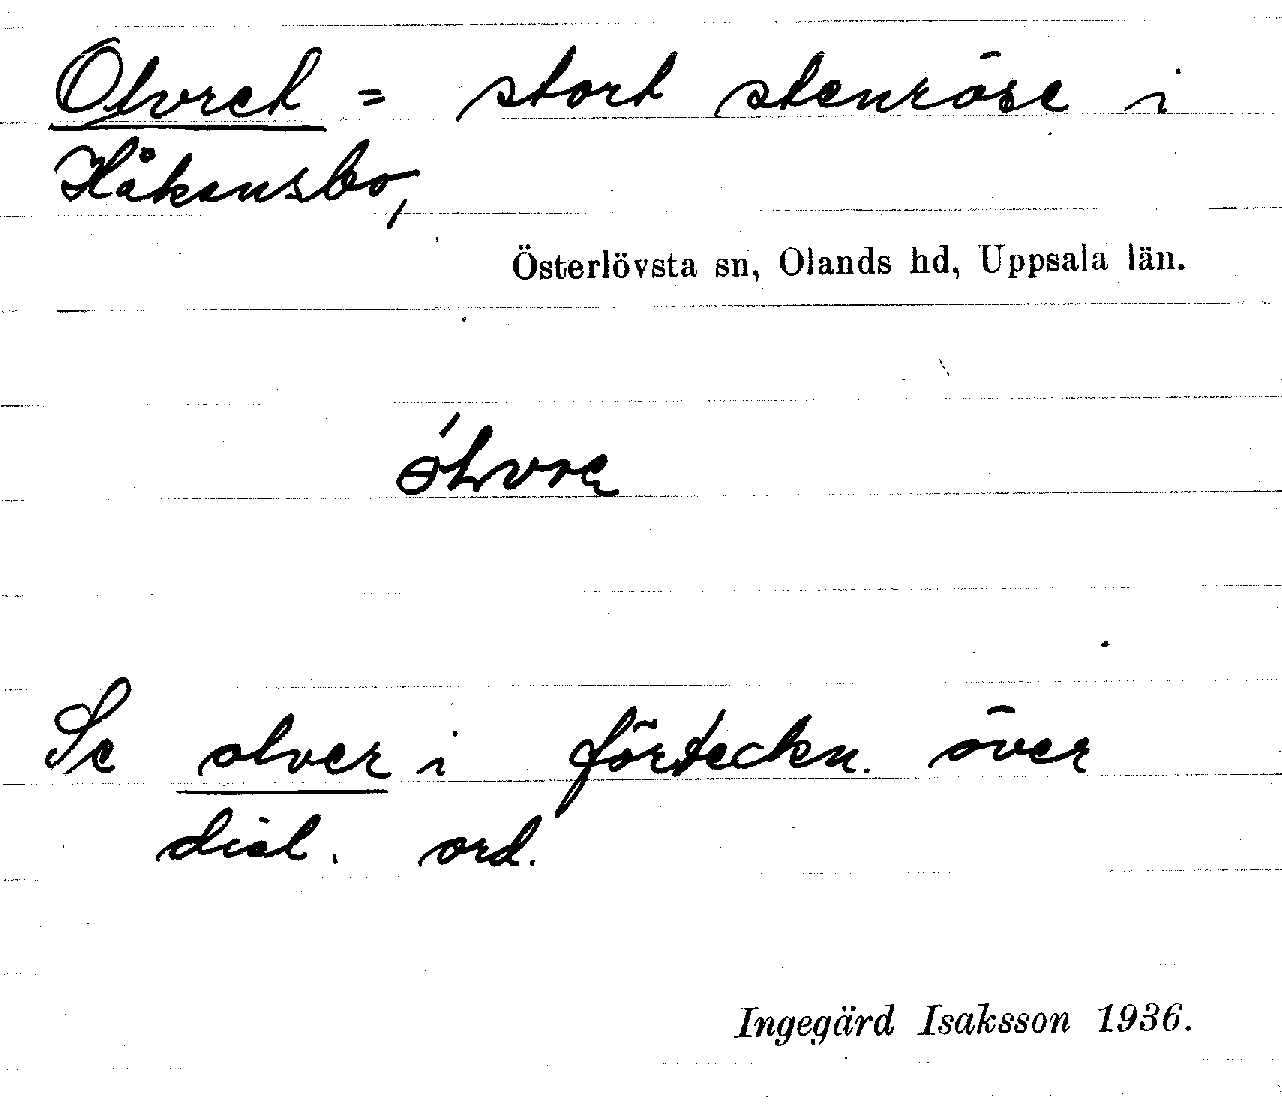 Olvret = stort stenröse i
Håkansbo,
Österlövsta sn, Olands hd, Uppsala län.
Se olver i förteckn. över
dial. ord.
Ingegärd Isaksson 1936.